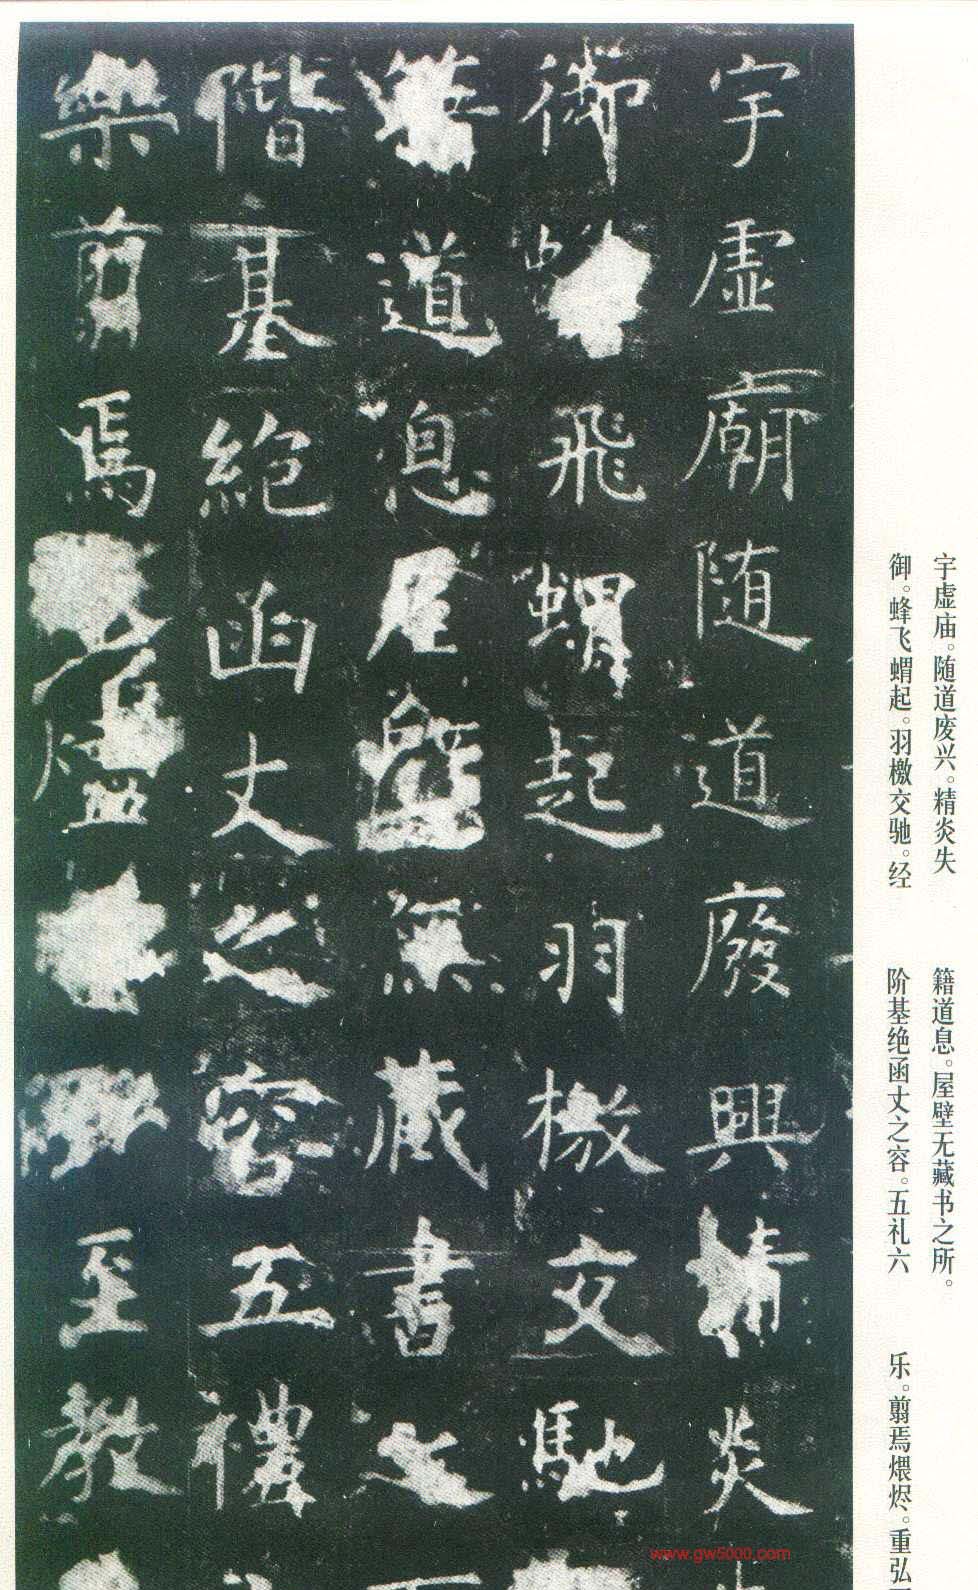 宇虛廟随道廢興精炎
御飛蝟起羽檄交馳
道息屋壁無藏書之
階基絶函丈之容五禮
樂翦焉至教
宇虚庙。随道废兴。精炎失
御。蜂飞蝟起。羽檄交驰。经
籍道息。屋壁无藏书之所。
阶基绝函丈之容。五礼六
乐。翦焉煨烬。重弘
www.gw5000.com